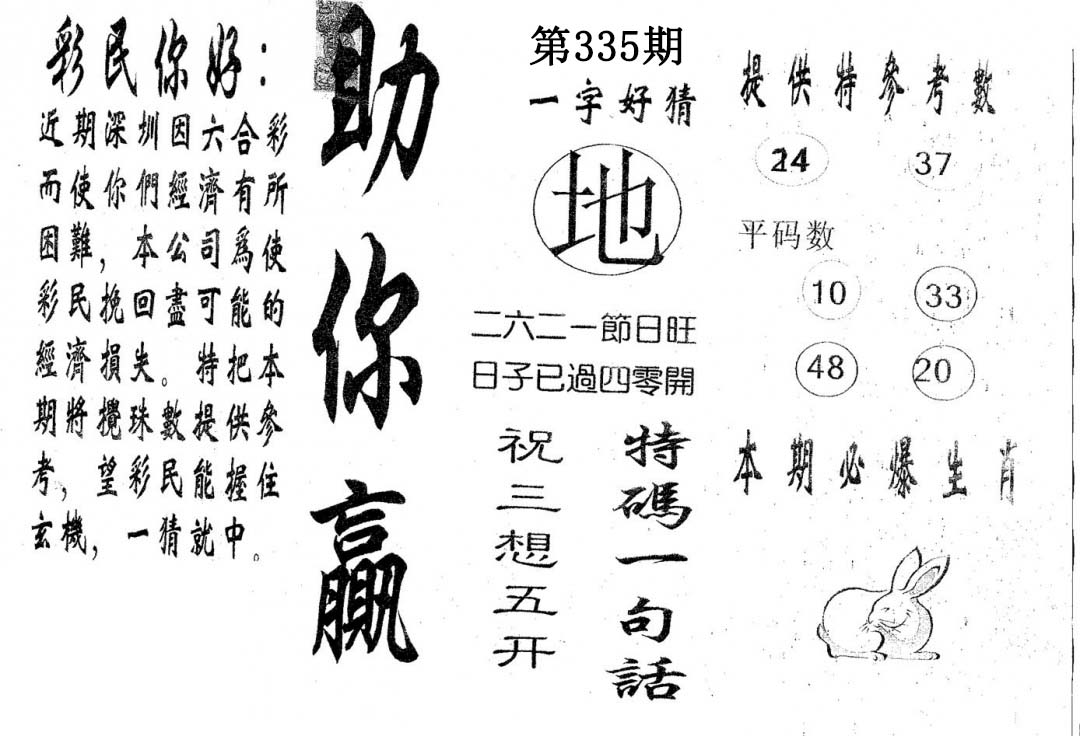 彩民你好：
近期深圳因六合彩
而使你們經濟有所
困難，本公司爲使
彩民挽回盡可能的
經濟損失。特把本
期將攪珠數提供參
考，望彩民能握住
玄機，一猜就中。
助你贏
第335期
一字好猜
地
二六二一節日旺
日子已過四零開
特碼一句話
祝三想五开
提供特參考數
24 37
平码数
10 33
48 20
本期必爆生肖